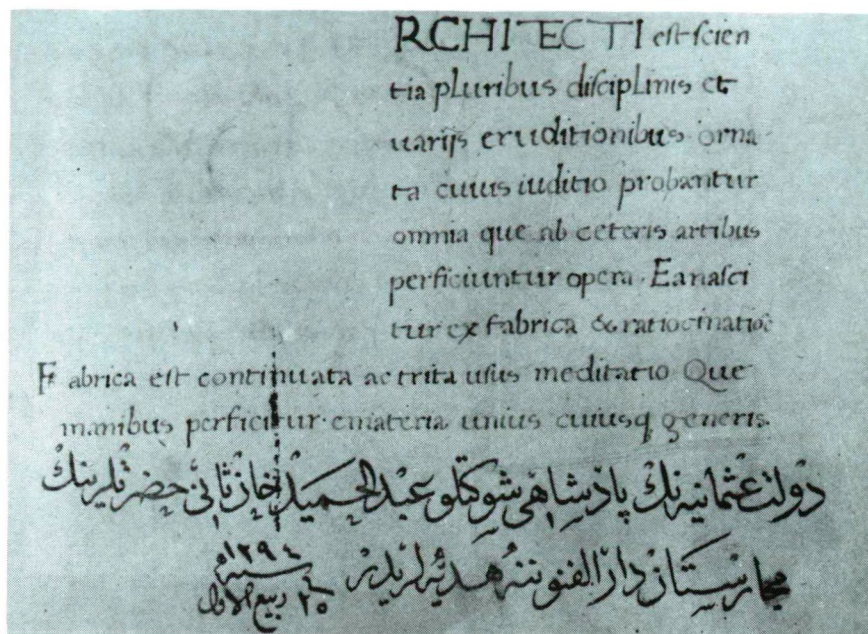 RCHITECTI est scien
tia pluribus disciplinis et
uarijs eruditionibus orna
ta cuius iuditio probantur
omnia que ab ceteris artibus
perficiuntur opera. Ea nasci
tur ex fabrica & ratiocinatiōe
Fabrica est continuata ac trita usus meditatio Que
manibus perficitur e materia unius cuiusq generis.
دولت عثمانیه نڭ پادشاهی شوکتلو عبد الحمید خان ثانی حضرتلرینڭ
مجارستان دار الفنوننه هدیه لریدر
سنه ١٢٩٤
فی ٢٥ ربیع الاول